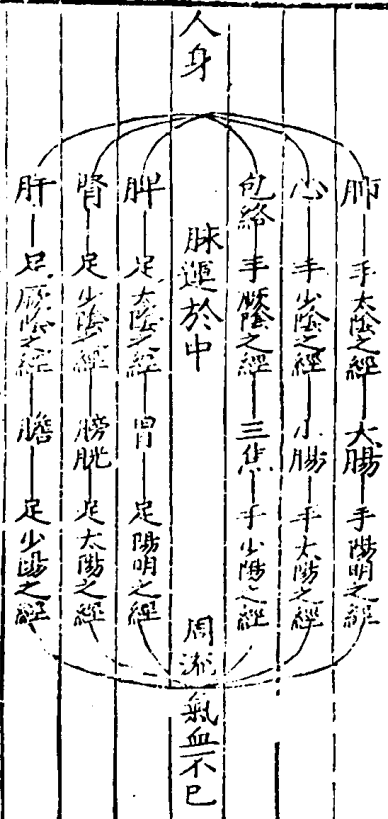 人身
肺 手太陰之經 大腸 手陽明之經
心 手少陰之經 小腸 手太陽之經
包絡 手厥陰之經 三焦 手少陽之經
脉運於中
脾 足太陰之經 胃 足陽明之經
腎 足少陰之經 膀胱 足太陽之經
肝 足厥陰之經 膽 足少陽之經
周流氣血不已